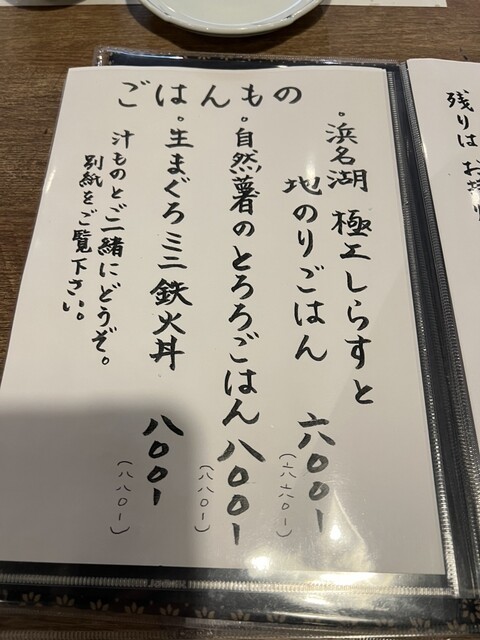 ごはんもの
。浜名湖 極上しらすと
地のりごはん 六〇〇ー
(六六〇ー)
。自然薯のとろろごはん 八〇〇ー
(八八〇ー)
。生まぐろミニ鉄火丼 八〇〇ー
(八八〇ー)
汁ものとご一緒にどうぞ。
別紙をご覧下さい。
残りは お